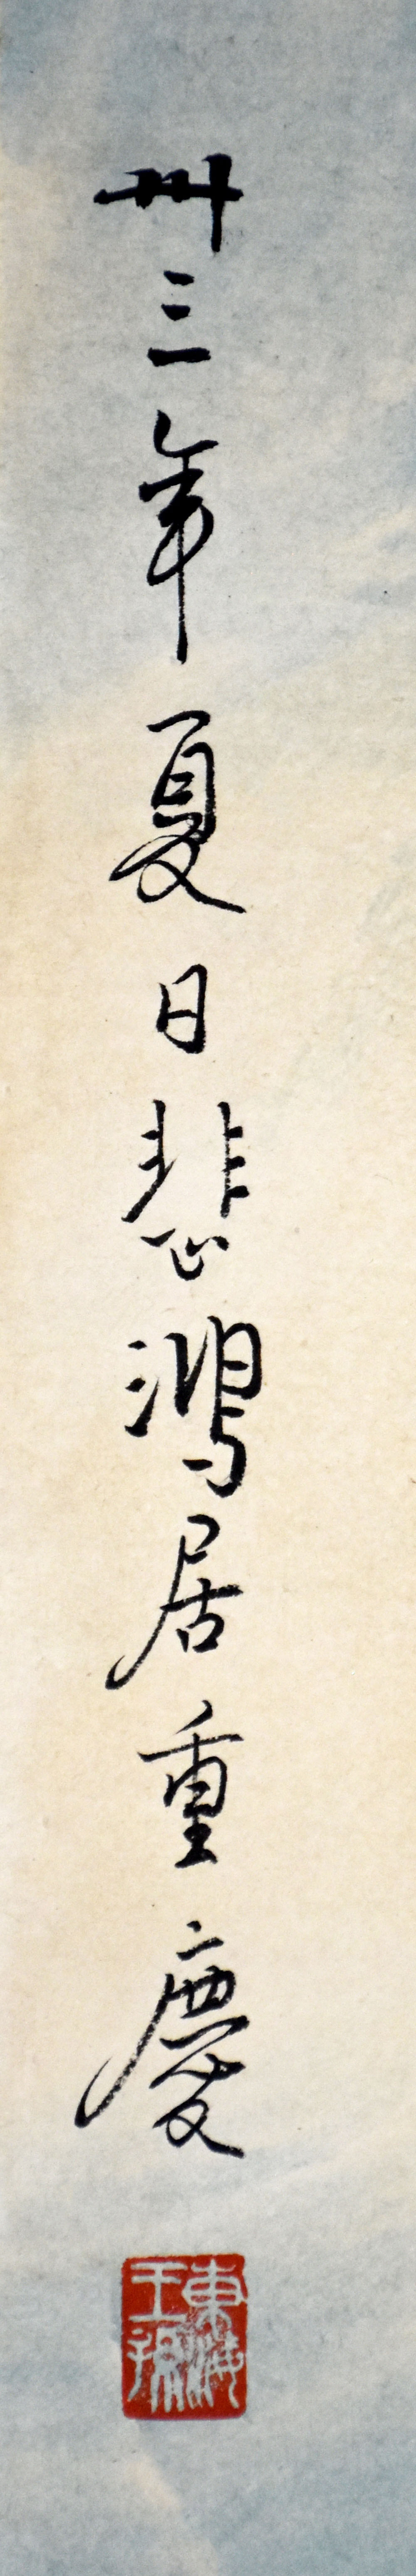 卅三年夏日悲鴻居重慶
東海王孫